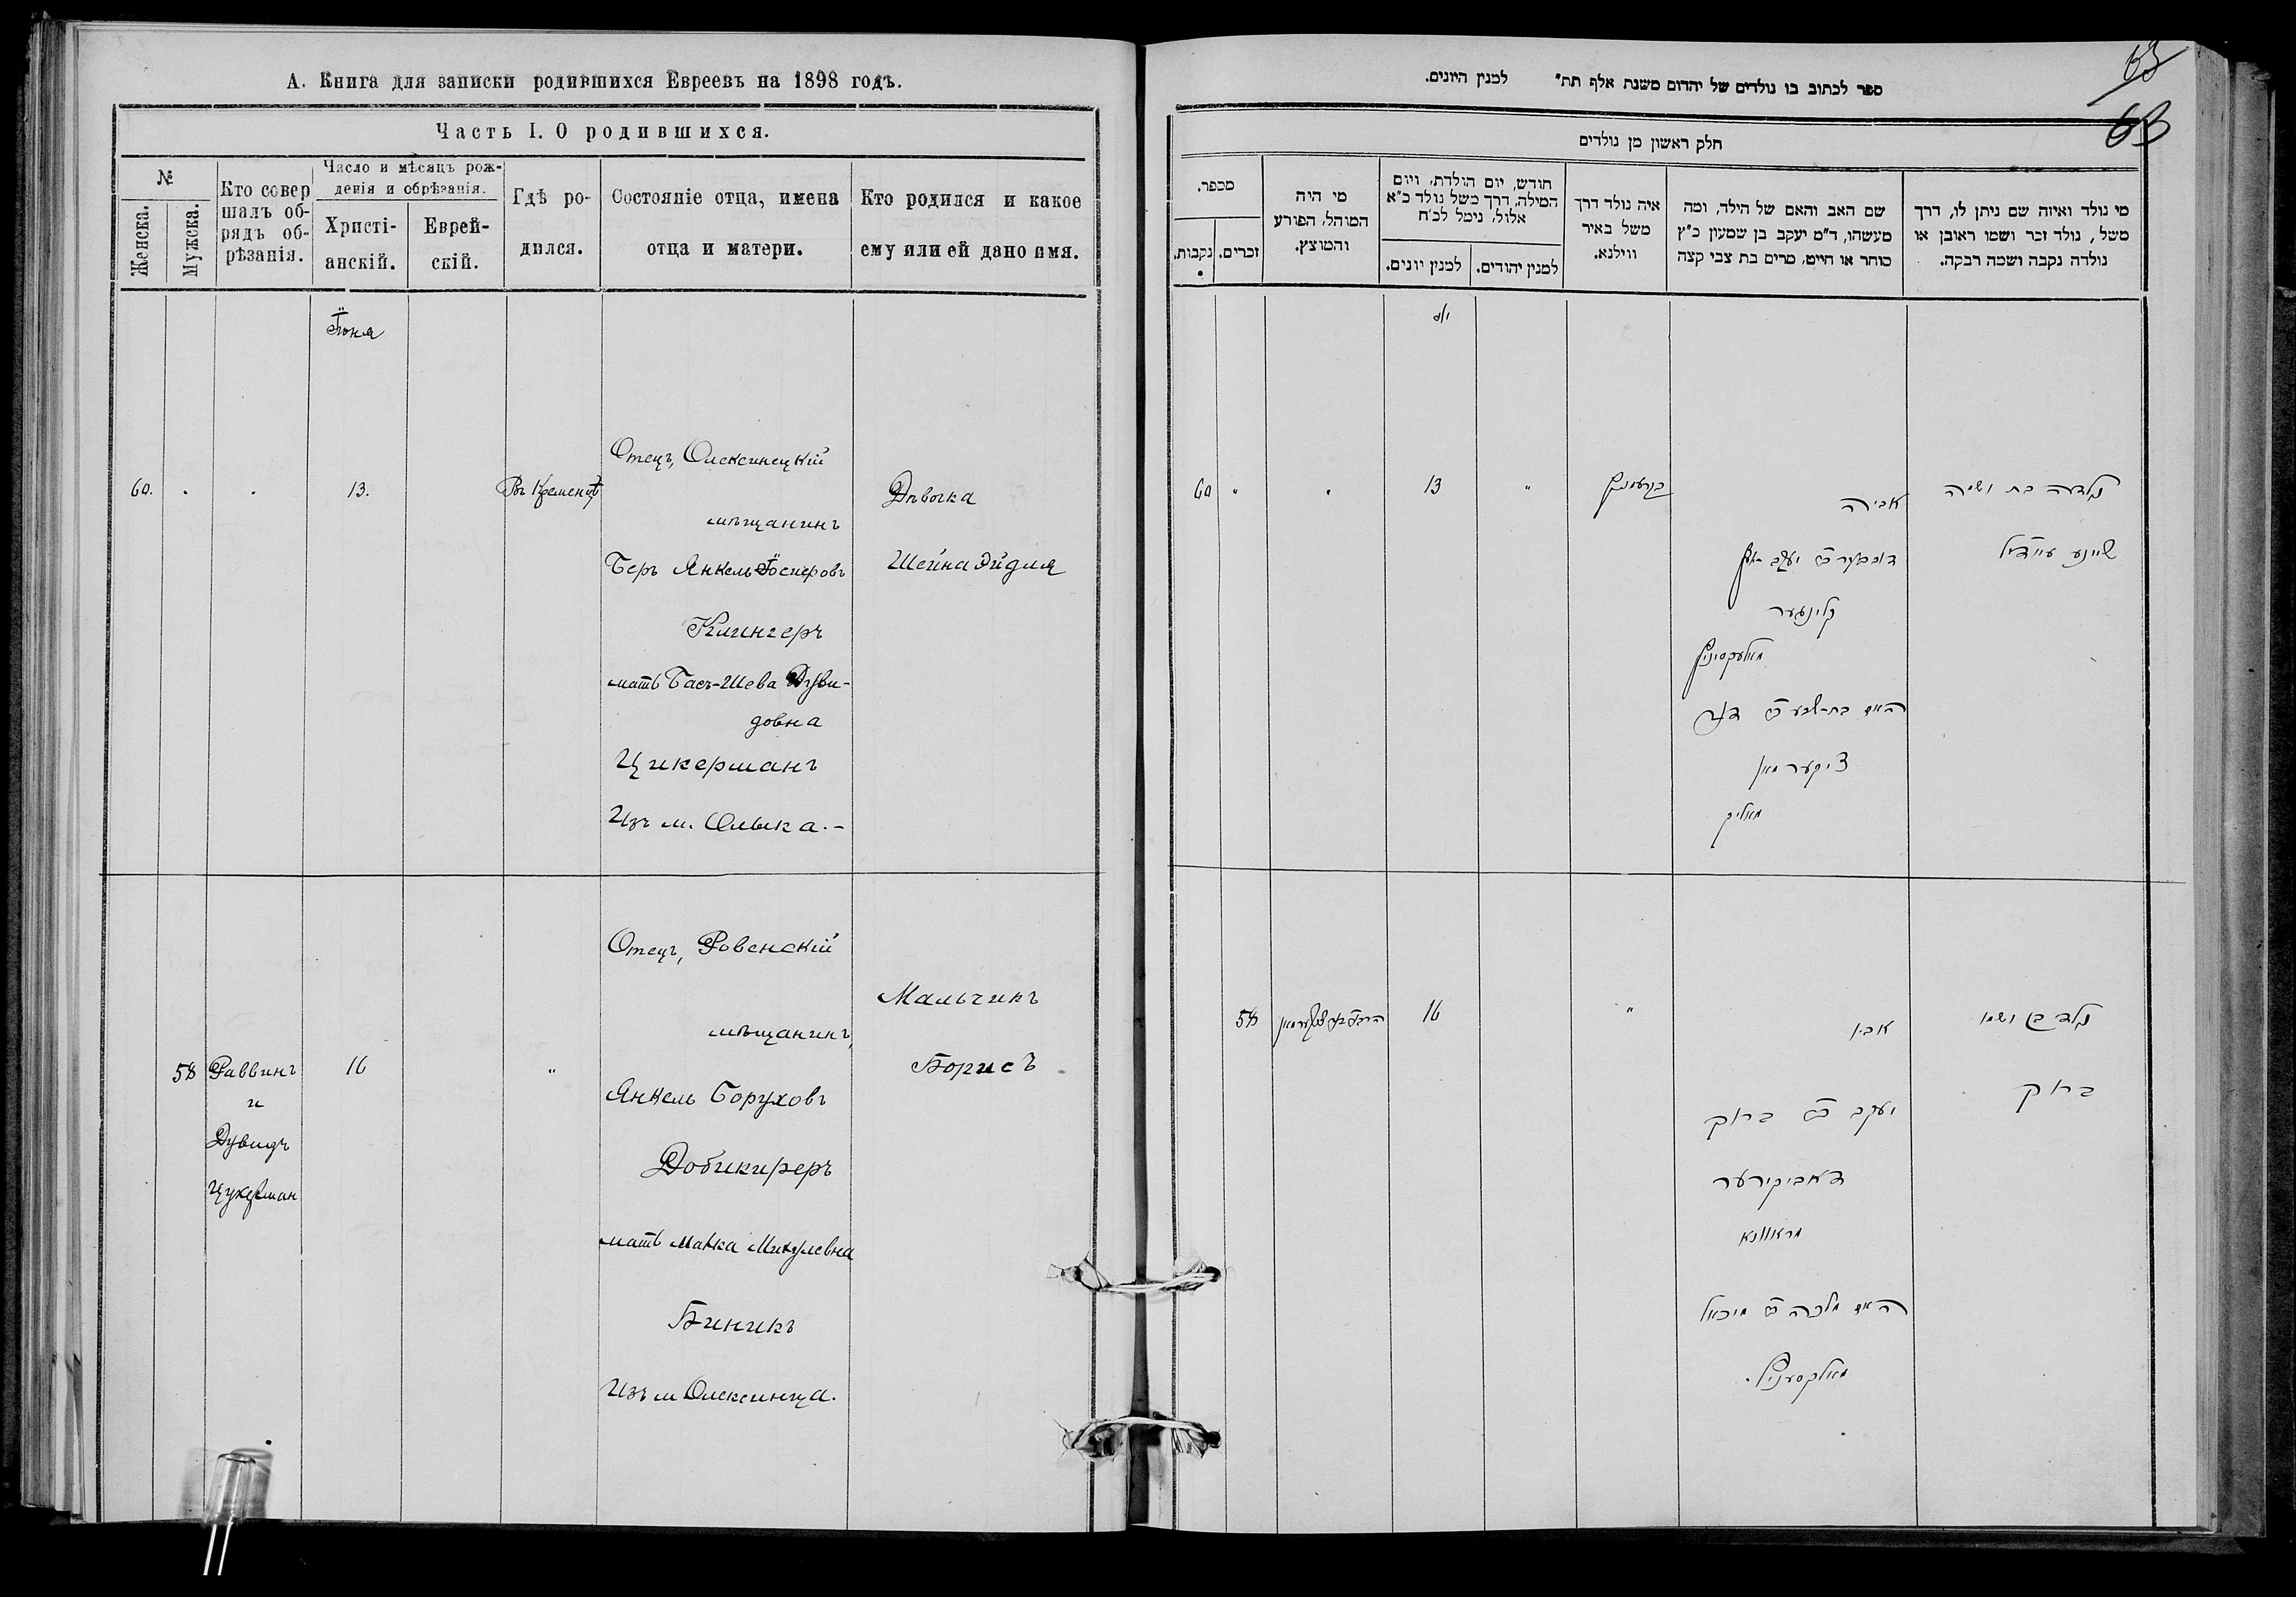 А. Книга для записки родившихся Евреевъ на 1898 годъ.
Часть I. О родившихся.
№
Женска.
Мужска.
Кто совер
шалъ об-
рядъ об-
рѣзанія.
Число и мѣсяцъ рож-
денія и обрѣзанія.
Христі-
анскій.
Еврей-
скій.
Гдѣ ро-
дился.
Состояніе отца, имена
отца и матери.
Кто родился и какое
ему или ей дано имя.
Іюня
60.
13.
Въ Кременцѣ
Отецъ, Олексинецкій
мѣщанинъ
Беръ Янкель Іосиферовъ
Клингеръ
мать Бася-Шева Дуви-
довна
Цикерманъ
Изъ м. Олыка.-
Дѣвочка
Шейна Эйдля
58
Раввинъ
и
Дувидъ
Цукерман
16
"
Отецъ, Ровенскій
мѣщанинъ,
Янкель Боруховъ
Добикиреръ
мать Малка Михулевна
Биникъ
Изъ м Олексинца.
Мальчикъ
Борисъ
63
63
ספר לכתוב בו נולדים של יהדום משנת אלף תת״ למנין היונים.
חלק ראשון מן נולדים
מכפר.
נקבות.
זכרים.
מי היה
המוהל, הפורע
והמוצץ.
חודש, יום הולדת, ויום
המילה, דרך משל נולד כ״א
אלול, נימל לכ׳ח
למנין יונים.
למנין יהודים.
איה נולד דרך
משל באיר
ווילנא.
שם האב והאם של הילד, ומה
מעשהו, ד״מ יעקב בן שמעון כ״ץ
סוחר או חייט, מרים בת צבי קצה
מי נולד ואיזה שם ניתן לו, דרך
משל, נולד זכר ושמו ראובן או
נולדה נקבה ושמה רבקה.
60
"
"
13
"
אביה
קלינגער
האם בת-שבע
ציקערמאן
מאליק
נולדה בת ושמה
שיינע איידיל
58
16
"
אביו
יעקב ב״ר ברוך
דאביקירער
מראוונא
האם מלכה ב״ר מיכאל
נולד בן ושמו
ברוך